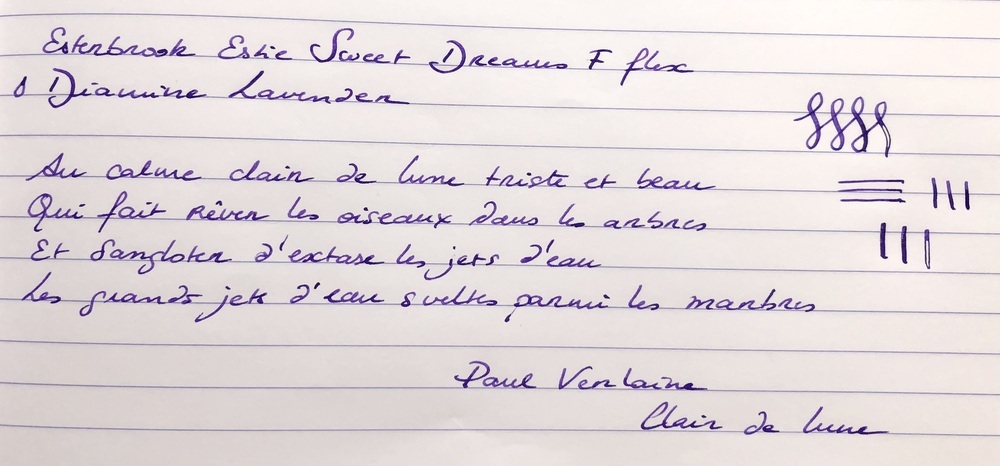 Esterbrook Estie Sweet Dreams F flex
Diamine Lavender
Au calme clair de lune triste et beau
Qui fait rêver les oiseaux dans les arbres
Et sangloter d'extase les jets d'eau
Les grands jets d'eau sveltes parmi les marbres
Paul Verlaine
Clair de lune